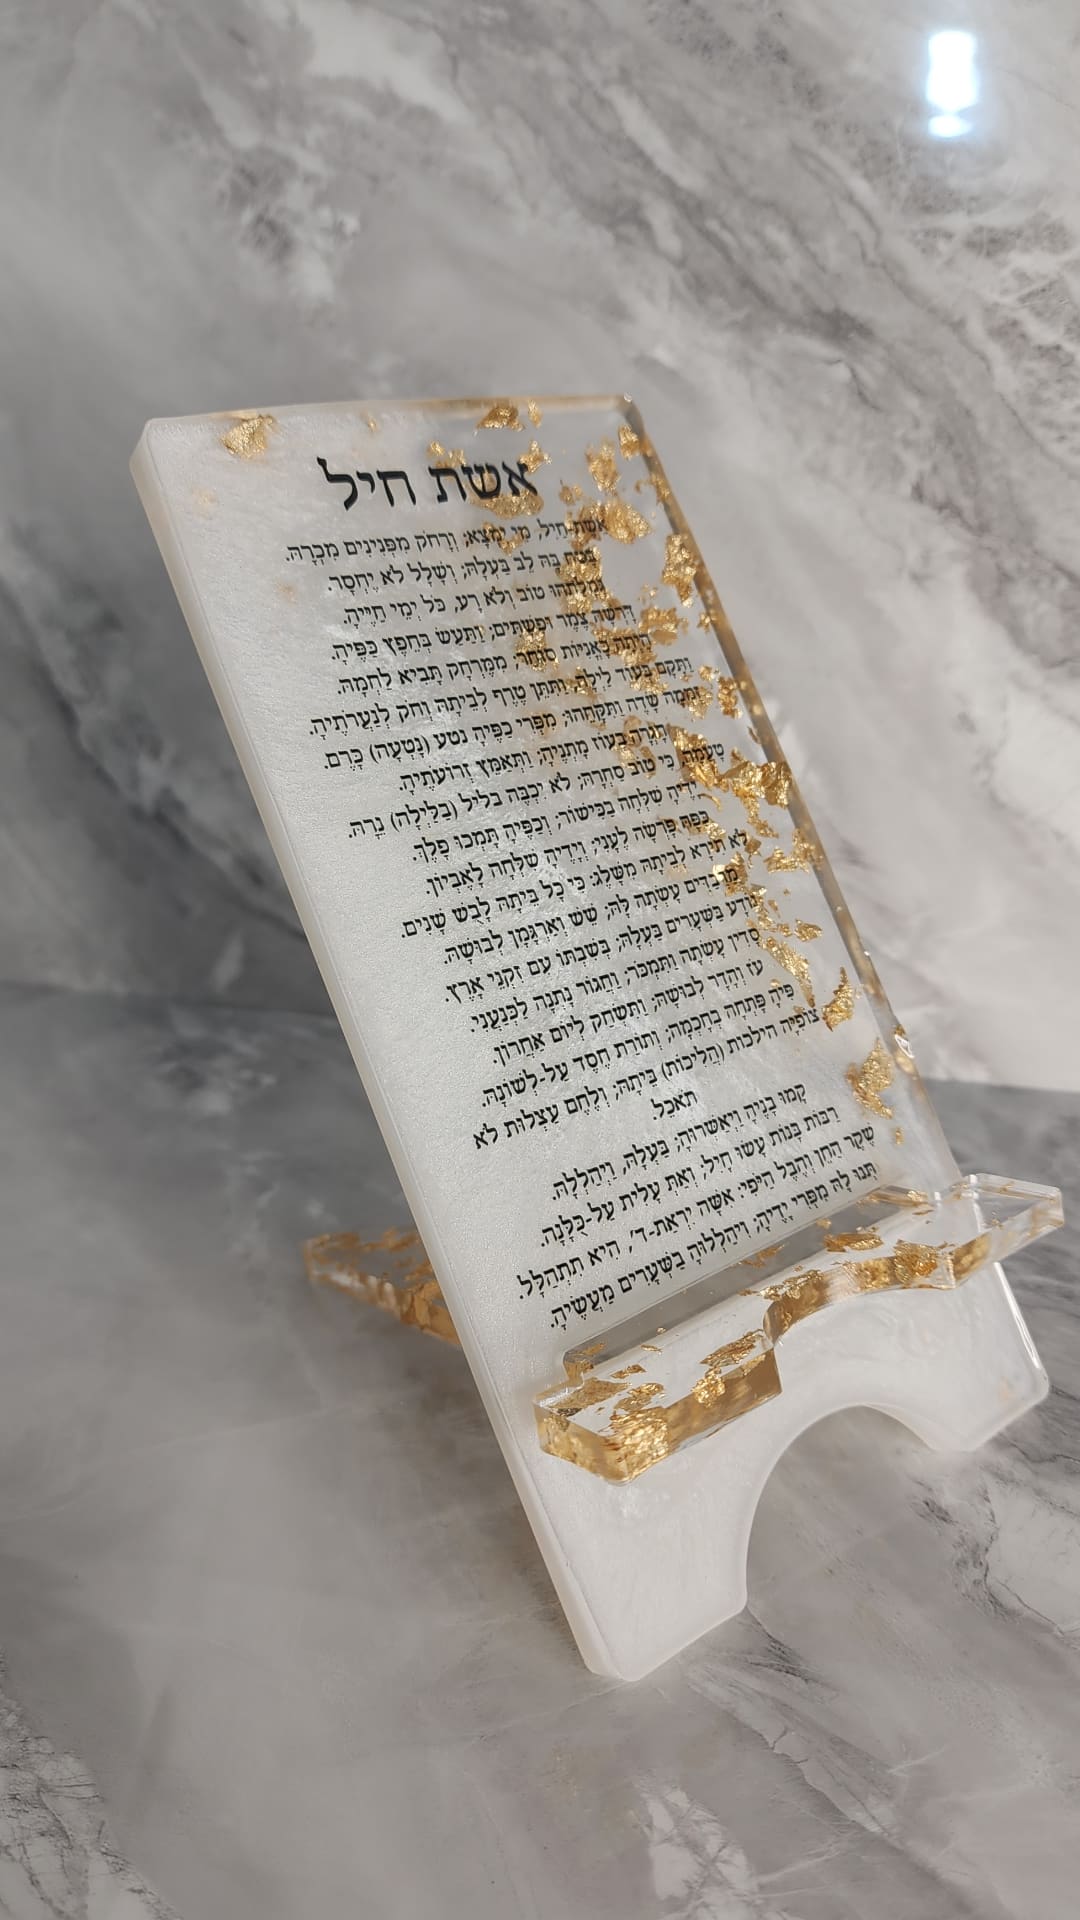 אשת חיל
אֵשֶׁת-חַיִל, מִי יִמְצָא; וְרָחֹק מִפְּנִינִים מִכְרָהּ.
בָּטַח בָּהּ לֵב בַּעְלָהּ; וְשָׁלָל לֹא יֶחְסָר.
גְּמָלַתְהוּ טוֹב וְלֹא רָע, כֹּל יְמֵי חַיֶּיהָ.
דָּרְשָׁה צֶמֶר וּפִשְׁתִּים; וַתַּעַשׂ בְּחֵפֶץ כַּפֶּיהָ.
הָיְתָה כָּאֳנִיּוֹת סוֹחֵר; מִמֶּרְחָק תָּבִיא לַחְמָהּ.
וַתָּקָם בְּעוֹד לַיְלָה, וַתִּתֵּן טֶרֶף לְבֵיתָהּ וְחֹק לְנַעֲרֹתֶיהָ.
זָמְמָה שָׂדֶה וַתִּקָּחֵהוּ; מִפְּרִי כַפֶּיהָ נטע (נָטְעָה) כָּרֶם.
חָגְרָה בְעוֹז מָתְנֶיהָ; וַתְּאַמֵּץ זְרוֹעֹתֶיהָ.
טָעֲמָה, כִּי טוֹב סַחְרָהּ; לֹא יִכְבֶּה בליל (בַלַּיְלָה) נֵרָהּ.
יָדֶיהָ שִׁלְּחָה בַכִּישׁוֹר; וְכַפֶּיהָ תָּמְכוּ פָלֶךְ.
כַּפָּהּ פָּרְשָׂה לֶעָנִי; וְיָדֶיהָ שִׁלְּחָה לָאֶבְיוֹן.
לֹא תִירָא לְבֵיתָהּ מִשָּׁלֶג: כִּי כָל בֵּיתָהּ לָבֻשׁ שָׁנִים.
מַרְבַדִּים עָשְׂתָה לָּהּ; שֵׁשׁ וְאַרְגָּמָן לְבוּשָׁהּ.
נוֹדָע בַּשְּׁעָרִים בַּעְלָהּ; בְּשִׁבְתּוֹ עִם זִקְנֵי אָרֶץ.
סָדִין עָשְׂתָה וַתִּמְכֹּר; וַחֲגוֹר נָתְנָה לַכְּנַעֲנִי.
עֹז וְהָדָר לְבוּשָׁהּ; וַתִּשְׂחַק לְיוֹם אַחֲרוֹן.
פִּיהָ פָּתְחָה בְחָכְמָה; וְתוֹרַת חֶסֶד עַל-לְשׁוֹנָהּ.
צוֹפִיָּה הילכות (הֲלִיכוֹת) בֵּיתָהּ; וְלֶחֶם עַצְלוּת לֹא
תֹאכֵל.
קָמוּ בָנֶיהָ וַיְאַשְּׁרוּהָ; בַּעְלָהּ, וַיְהַלְלָהּ.
רַבּוֹת בָּנוֹת עָשׂוּ חָיִל; וְאַתְּ עָלִית עַל-כֻּלָּנָה.
שֶׁקֶר הַחֵן וְהֶבֶל הַיֹּפִי: אִשָּׁה יִרְאַת-ד', הִיא תִתְהַלָּל.
תְּנוּ לָהּ מִפְּרִי יָדֶיהָ; וִיהַלְלוּהָ בַשְּׁעָרִים מַעֲשֶׂיהָ.